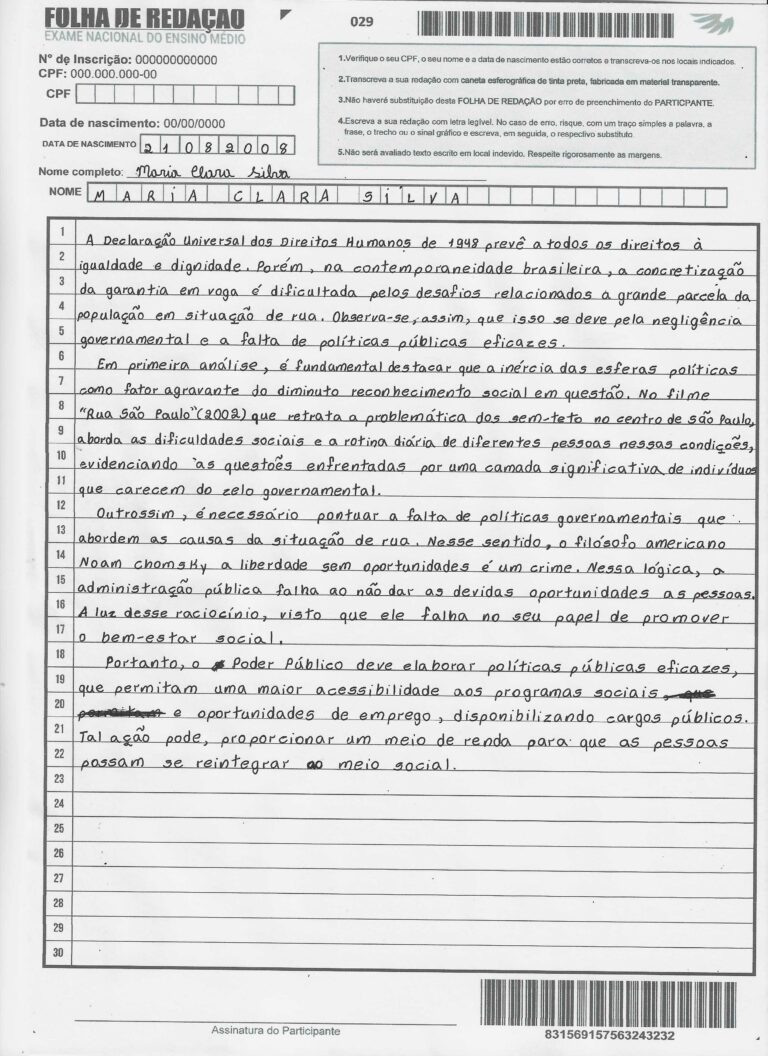 FOLHA DE REDAÇÃO
EXAME NACIONAL DO ENSINO MÉDIO
029
N° de Inscrição: 000000000000
CPF: 000.000.000-00
CPF
Data de nascimento: 00/00/0000
DATA DE NASCIMENTO 21082008
Nome completo: Maria Clara Silva
NOME MARIA CLARA SILVA
1.Verifique o seu CPF, o seu nome e a data de nascimento estão corretos e transcreva-os nos locais indicados.
2.Transcreva a sua redação com caneta esferográfica de tinta preta, fabricada em material transparente.
3.Não haverá substituição desta FOLHA DE REDAÇÃO por erro de preenchimento do PARTICIPANTE.
4.Escreva a sua redação com letra legível. No caso de erro, risque, com um traço simples a palavra, a
frase, o trecho ou o sinal gráfico e escreva, em seguida, o respectivo substituto.
5.Não será avaliado texto escrito em local indevido. Respeite rigorosamente as margens.
1 A Declaração Universal dos Direitos Humanos de 1948 prevê a todos os direitos à
2 igualdade e dignidade. Porém, na contemporaneidade brasileira, a concretização
3 da garantia em voga é dificultada pelos desafios relacionados a grande parcela da
4 população em situação de rua. Observa-se, assim, que isso se deve pela negligência
5 governamental e a falta de políticas públicas eficazes.
6 Em primeira análise, é fundamental destacar que a inércia das esferas políticas
7 como fator agravante do diminuto reconhecimento social em questão. No filme
8 "Rua São Paulo" (2002) que retrata a problemática dos sem-teto no centro de São Paulo,
9 aborda as dificuldades sociais e a rotina diária de diferentes pessoas nessas condições,
10 evidenciando as questões enfrentadas por uma camada significativa de indivíduos
11 que carecem do zelo governamental.
12 Outrossim, é necessário pontuar a falta de políticas governamentais que
13 abordem as causas da situação de rua. Nesse sentido, o filósofo americano
14 Noam chomsky a liberdade sem oportunidades é um crime. Nessa lógica, a
15 administração pública falha ao não dar as devidas oportunidades as pessoas.
16 A luz desse raciocínio, visto que ele falha no seu papel de promover
17 o bem-estar social.
18 Portanto, o Poder Público deve elaborar políticas públicas eficazes,
19 que permitam uma maior acessibilidade aos programas sociais, que
20 permitam e oportunidades de emprego, disponibilizando cargos públicos.
21 Tal ação pode, proporcionar um meio de renda para que as pessoas
22 possam se reintegrar ao meio social.
23
24
25
26
27
28
29
30
Assinatura do Participante
831569157563243232